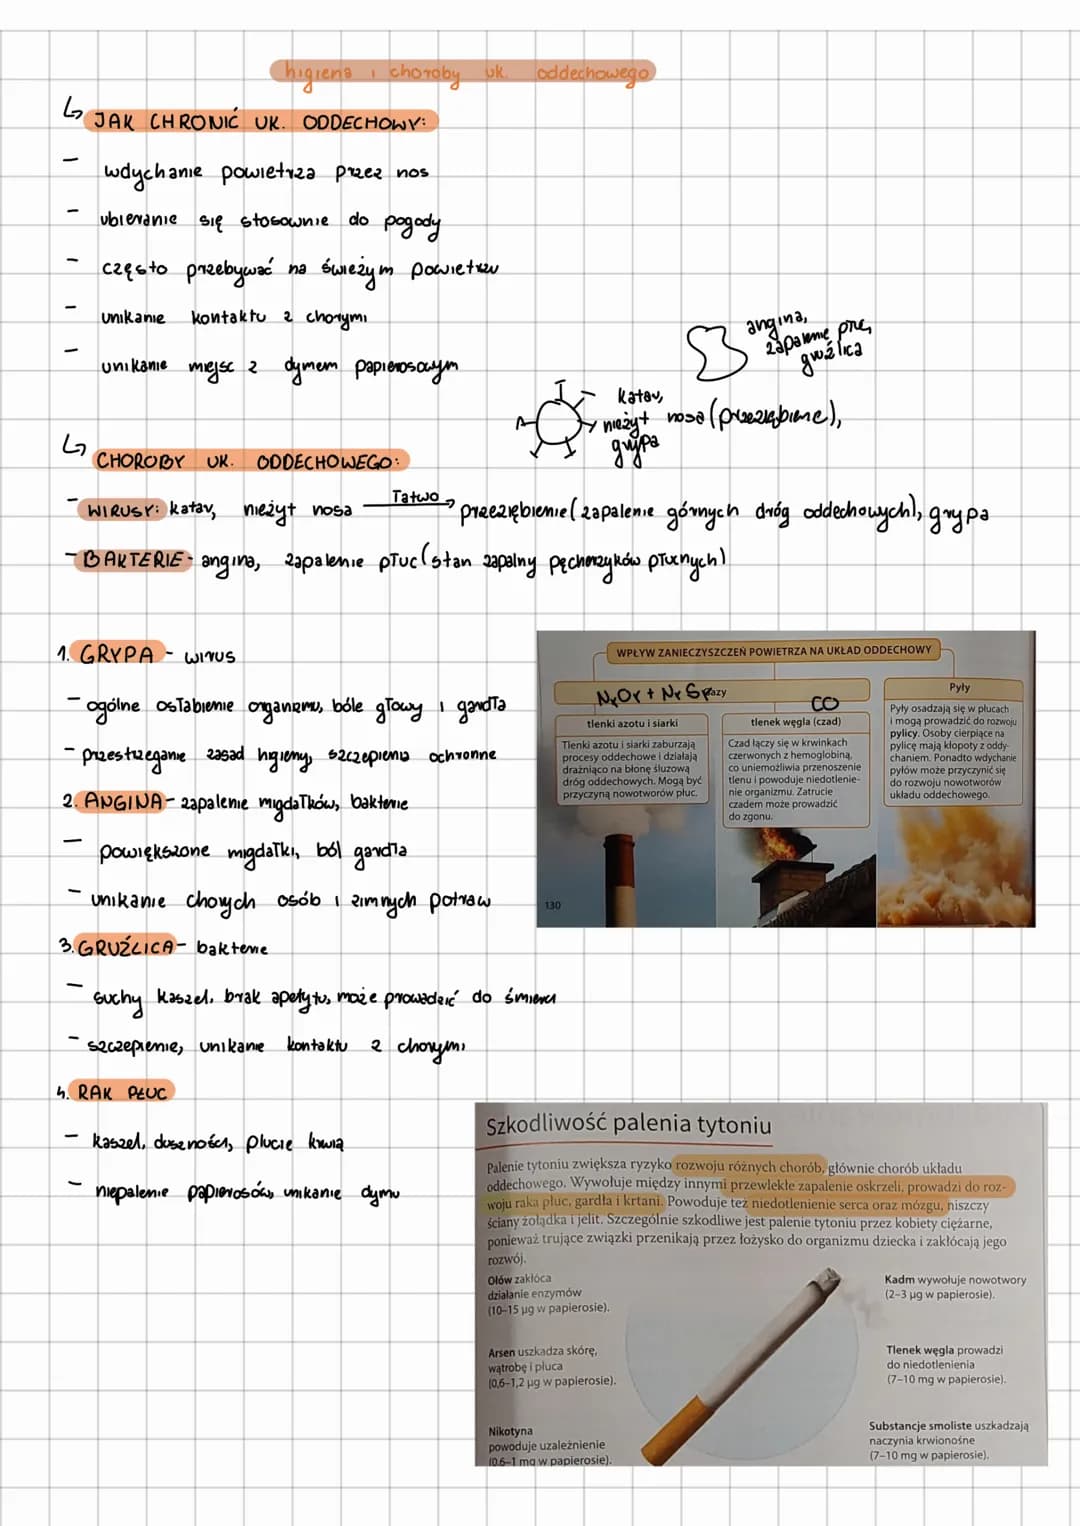 higiena i choroby uk. oddechowego
↳ JAK CHRONIĆ UK. ODDECHOWY:
- wdychanie powietrza przez nos
- ubieranie się stosownie do pogody
- często przebywać na świeżym powietrzu
- unikanie kontaktu z chorymi
- unikanie miejsc z dymem papierosowym
angina,
zapalenie płuc,
gruźlica
katar,
nieżyt nosa (przeziębienie),
grypa
↳ CHOROBY UK. ODDECHOWEGO:
- WIRUSY: katar, nieżyt nosa łatwo → przeziębienie (zapalenie górnych dróg oddechowych), grypa
- BAKTERIE - angina, zapalenie płuc (stan zapalny pęcherzyków płucnych)
1. GRYPA - wirus
- ogólne osłabienie organizmu, bóle głowy i gardła
- przestrzeganie zasad higieny, szczepienia ochronne
2. ANGINA - zapalenie migdałków, bakterie
- powiększone migdałki, ból gardła
- unikanie chorych osób i zimnych potraw
3. GRUŹLICA - bakterie
- suchy kaszel, brak apetytu, może prowadzić do śmierci
- szczepienie, unikanie kontaktu z chorymi
4. RAK PŁUC
- kaszel, duszności, plucie krwią
- niepalenie papierosów, unikanie dymu
WPŁYW ZANIECZYSZCZEŃ POWIETRZA NA UKŁAD ODDECHOWY
CO
tlenki azotu i siarki
Tlenki azotu i siarki zaburzają
procesy oddechowe i działają
drażniąco na błonę śluzową
dróg oddechowych. Mogą być
przyczyną nowotworów płuc.
tlenek węgla (czad)
Czad łączy się w krwinkach
czerwonych z hemoglobiną,
co uniemożliwia przenoszenie
tlenu i powoduje niedotlenie-
nie organizmu. Zatrucie
czadem może prowadzić
do zgonu.
Pyły
Pyły osadzają się w płucach
i mogą prowadzić do rozwoju
pylicy. Osoby cierpiące na
pylicę mają kłopoty z oddy-
chaniem. Ponadto wdychanie
pyłów może przyczynić się
do rozwoju nowotworów
układu oddechowego.
130
Szkodliwość palenia tytoniu
Palenie tytoniu zwiększa ryzyko rozwoju różnych chorób, głównie chorób układu
oddechowego. Wywołuje między innymi przewlekłe zapalenie oskrzeli, prowadzi do roz-
woju raka płuc, gardła i krtani. Powoduje też niedotlenienie serca oraz mózgu, niszczy
ściany żołądka i jelit. Szczególnie szkodliwe jest palenie tytoniu przez kobiety ciężarne,
ponieważ trujące związki przenikają przez łożysko do organizmu dziecka i zakłócają jego
rozwój.
Ołów zakłóca
działanie enzymów
(10–15 µg w papierosie).
Arsen uszkadza skórę,
wątrobę i płuca
(0,6–1,2 µg w papierosie).
Nikotyna
powoduje uzależnienie
(0,6–1 mg w papierosie).
Kadm wywołuje nowotwory
(2–3 µg w papierosie).
Tlenek węgla prowadzi
do niedotlenienia
(7–10 mg w papierosie).
Substancje smoliste uszkadzają
naczynia krwionośne
(7–10 mg w papierosie).